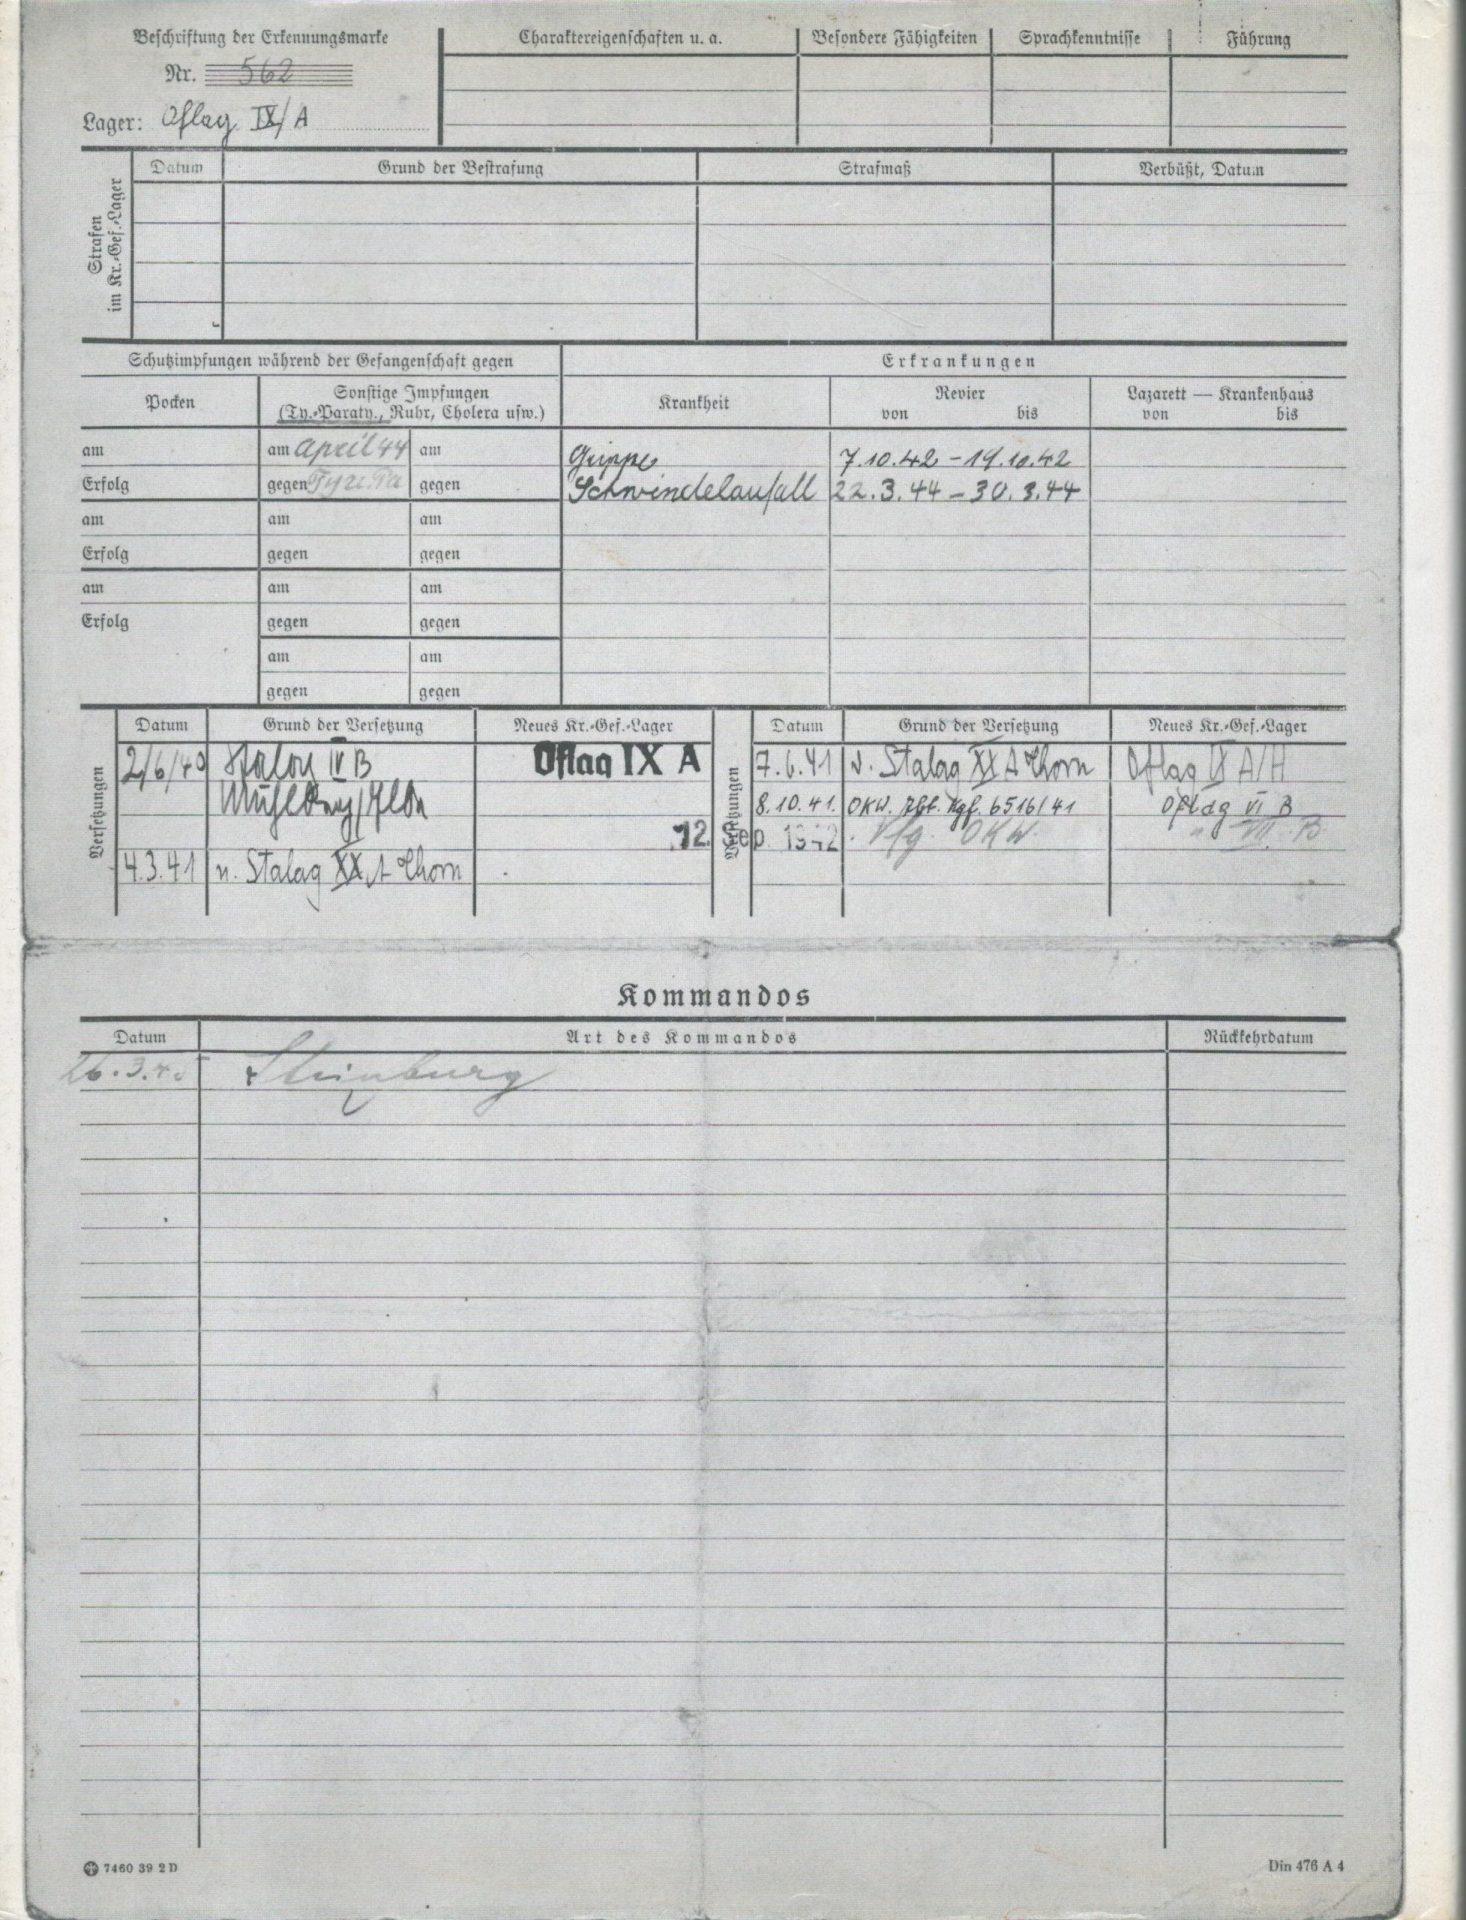 Beschriftung der Erkennungsmarke
Nr. 562
Lager: Oflag IX/A
Charaktereigenschaften u. a. Besondere Fähigkeiten Sprachkenntnisse Führung
Strafen
im Kr.-Gef.-Lager
Datum Grund der Bestrafung Strafmaß Verbüßt, Datum
Schutzimpfungen während der Gefangenschaft gegen Erkrankungen
Pocken Sonstige Impfungen
(Ty.-Paraty., Ruhr, Cholera usw.)
Krankheit Revier Lazarett — Krankenhaus
von bis von bis
am am April 44 am Grippe 7.10.42 - 19.10.42
Erfolg gegen gegen Schwindelanfall 22.3.44 - 30.3.44
am am am
Erfolg gegen gegen
am am am
Erfolg gegen gegen
am am
gegen gegen
Versetzungen
Datum Grund der Versetzung Neues Kr.-Gef.-Lager
2/6/40 Stalag IV B Oflag IX A
Mühlberg/Elbe
4.3.41 n. Stalag XX A Thorn
Versetzungen
Datum Grund der Versetzung Neues Kr.-Gef.-Lager
7.6.41 v. Stalag XX A Thorn Oflag IX A/H
8.10.41. OKW. Abt. Kgf. 6516/41 Oflag VI B
12. Sep. 1942 Vfg. OKW. " VII B
Kommandos
Datum Art des Kommandos Rückkehrdatum
26.3.45
7460 39 2 D
Din 476 A 4